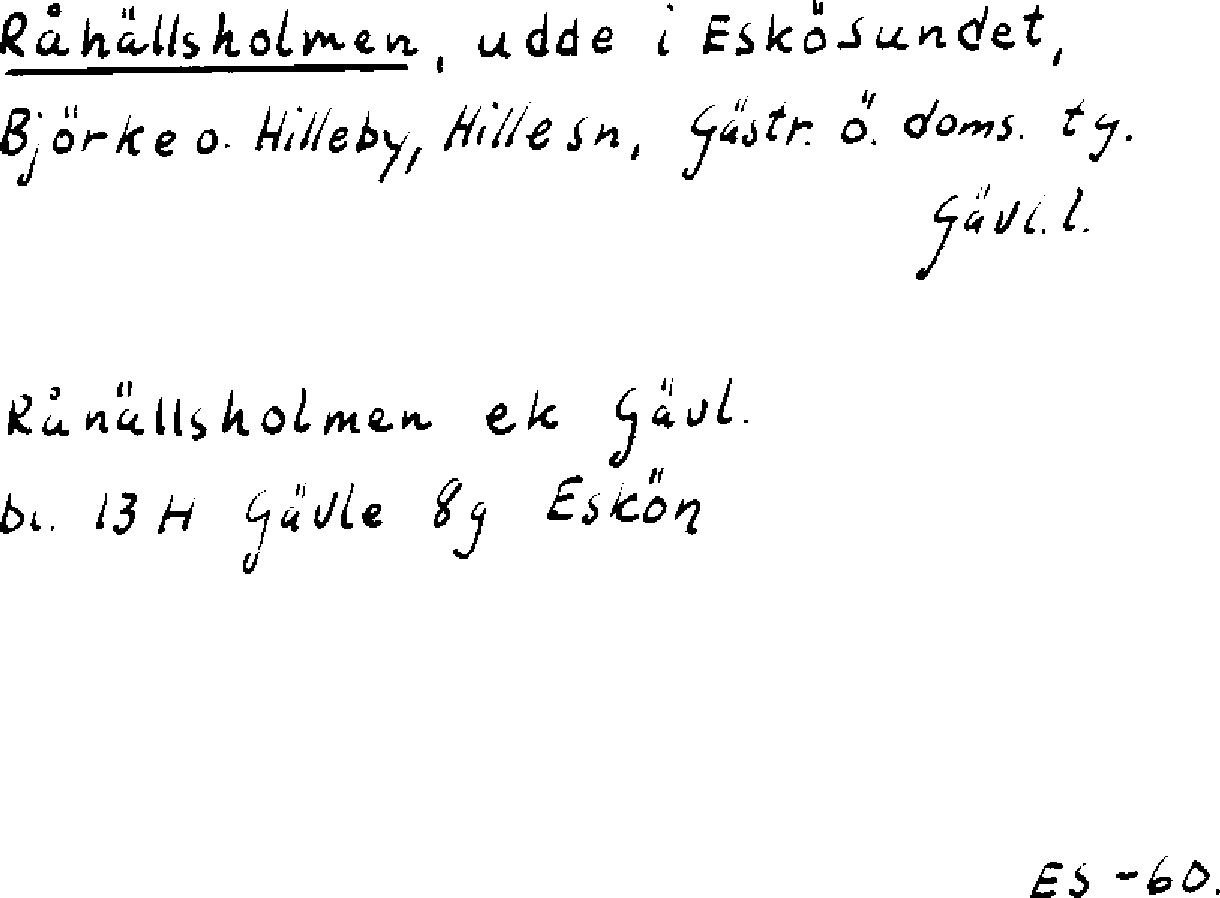 Råhällsholmen, udde i Eskösundet,
Björke o. Hilleby, Hille sn, Gästr. ö. doms. tg.
Gävl. l.
Rånällsholmen ek Gävl.
bl. 13 H Gävle 8g Eskön
ES -60.